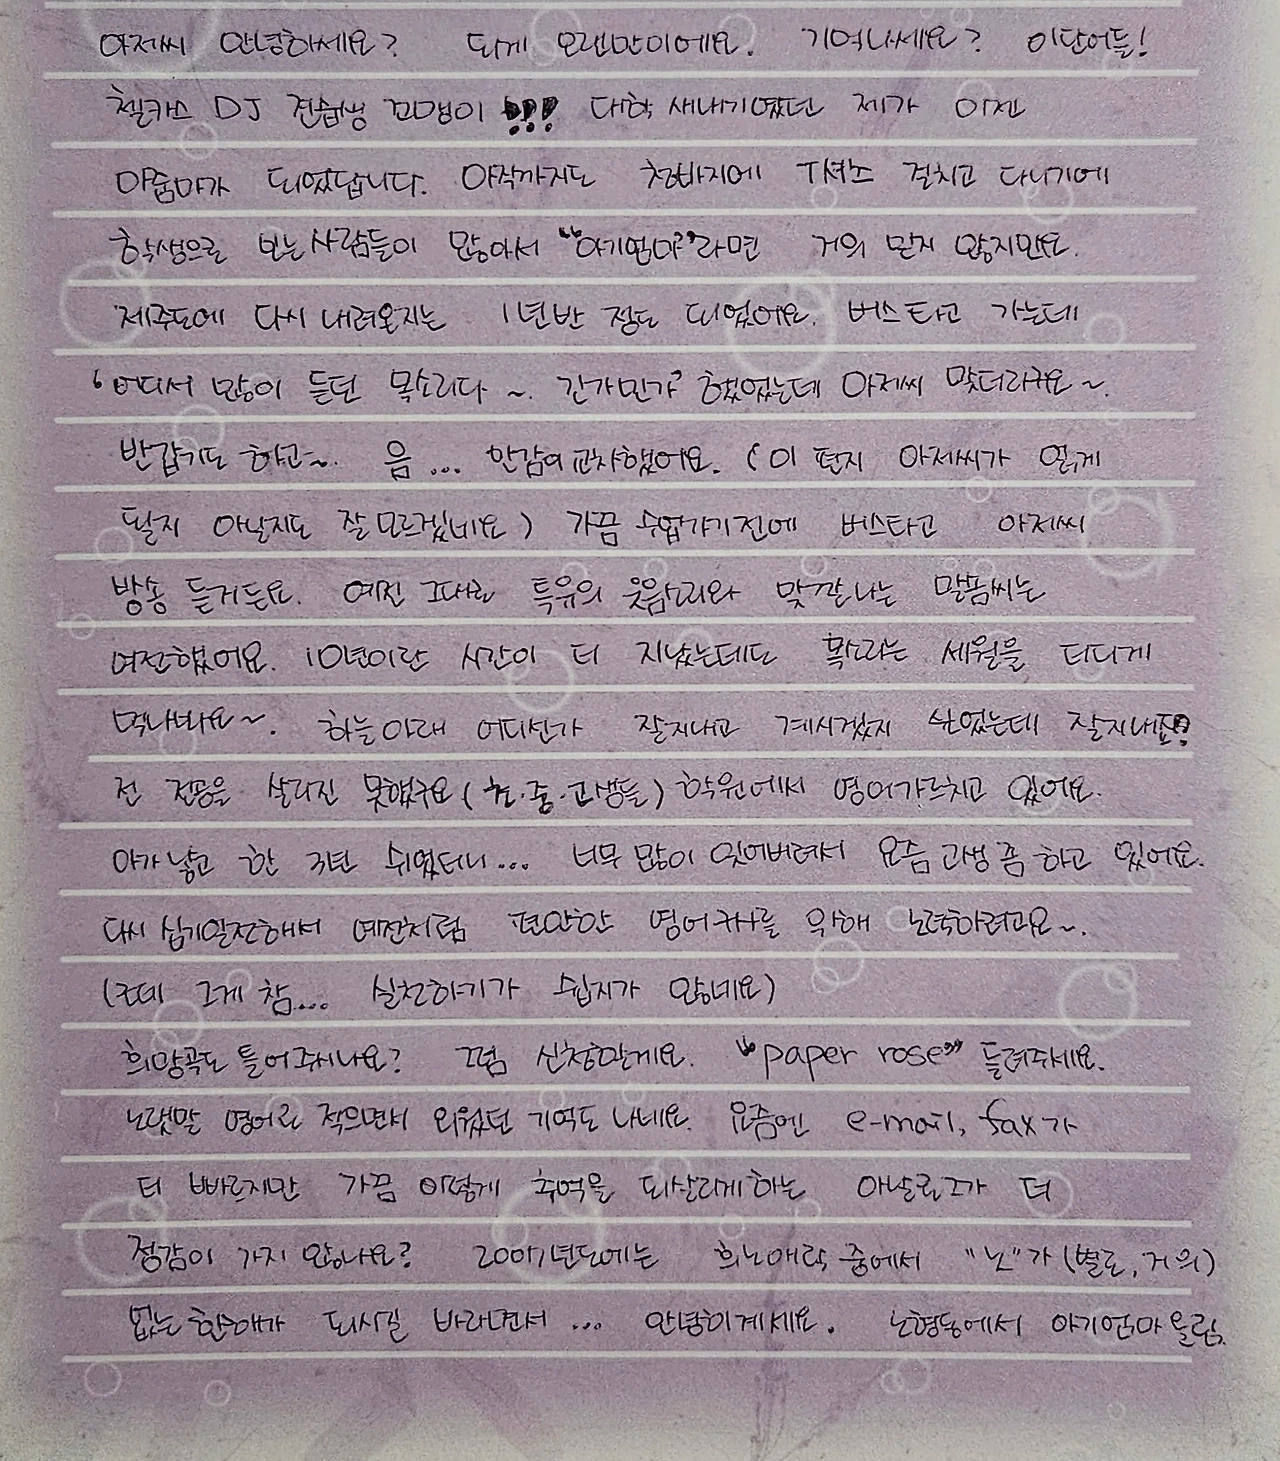 아저씨 안녕하세요? 되게 오랜만이에요. 기억나세요? 이단어들!
첼카스 DJ 견습생 꼬맹이 !!! 대학 새내기였던 제가 이젠
아줌마가 되었답니다. 아직까지도 청바지에 T셔츠 걸치고 다니기에
학생으로 보는 사람들이 많아서 "아기엄마?"라면 거의 믿지 않지만요.
제주도에 다시 내려온지는 1년반 정도 되었어요. 버스타고 가는데
'어디서 많이 듣던 목소리다~. 긴가민가' 했었는데 아저씨 맞더라구요~.
반갑기도 하고~. 음... 만감이 교차했어요. (이 편지 아저씨가 읽게
될지 아닐지도 잘 모르겠네요) 가끔 수업가기전에 버스타고 아저씨
방송 듣거든요. 예전 그대로 특유의 웃음소리와 맛깔나는 말품씨는
여전했어요. 10년이란 시간이 더 지났는데도 목소리는 세월을 더디게
먹나봐요~. 하늘아래 어디선가 잘지내고 계시겠지 싶었는데 잘지내죠?
전 전공을 살리진 못했구요(초·중·고생들) 학원에서 영어가르치고 있어요.
아가 낳고 한 3년 쉬었더니... 너무 많이 잊어버려서 요즘 고생 좀 하고 있어요.
다시 심기일전해서 예전처럼 편안한 영어구사를 위해 노력하려고요~.
(근데 그게 참... 실천하기가 쉽지가 않네요)
희망곡도 틀어주시나요? 그럼 신청할게요. "paper rose" 들려주세요.
노랫말 영어로 적으면서 외웠던 기억도 나네요. 요즘엔 e-mail, fax가
더 빠르지만 가끔 이렇게 추억을 되살리게하는 아날로그가 더
정감이 가지 않나요? 2007년도에는 희노애락 중에서 "노"가 (별로, 거의)
없는 한해가 되시길 바라면서 ... 안녕히계세요. 노형동에서 아기엄마 올림.